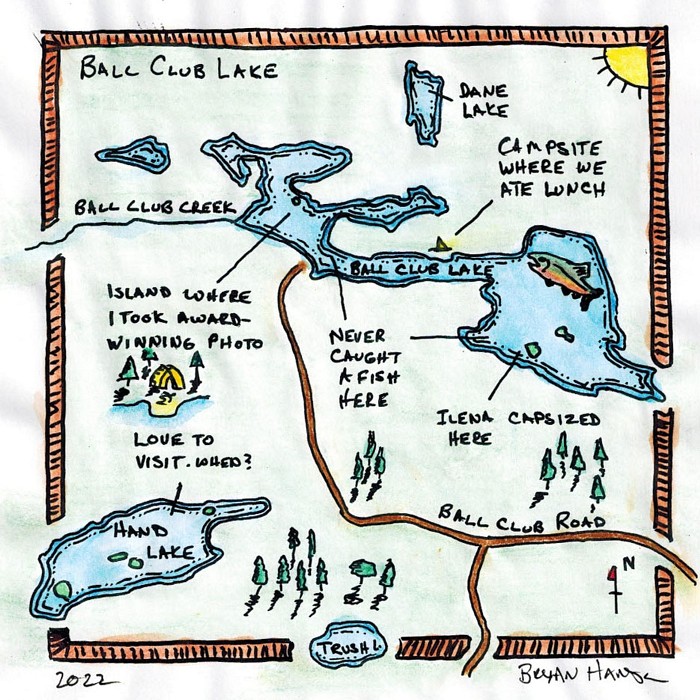 BALL CLUB LAKE
DANE
LAKE
CAMPSITE
WHERE WE
ATE LUNCH
BALL CLUB CREEK
BALL CLUB LAKE
ISLAND WHERE
I TOOK AWARD-
WINNING PHOTO
NEVER
CAUGHT
A FISH
HERE
ILENA CAPSIZED
HERE
LOVE TO
VISIT. WHEN?
HAND
LAKE
BALL CLUB ROAD
N
TRUSH L
2022
BRYAN